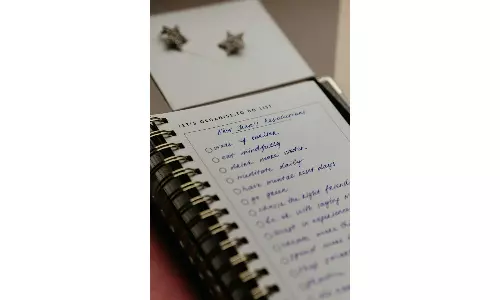 LET'S ORGANISE TO DO LIST
New Year's Resolutions
wake up earlier
eat mindfully
drink more water
meditate daily
have mental rest days
go green
choose the right friends
be ok with saying
invest in experiences
create more
spend more
stop